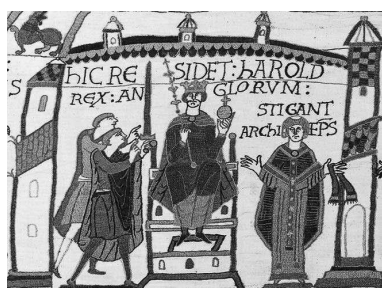 S
HIC RESIDET: HAROLD
REX: ANGLORVM:
STIGANT
ARCHIEPS